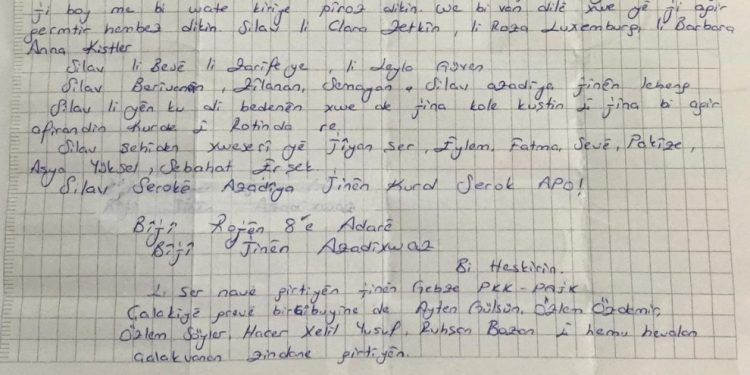 ji boy me bi wate kiriye pîroz dikin. we bi van dilê xwe yê ji agir
germtir hembêz dikin. Silav li Clara Zetkin, li Roza Luxemburg, li Barbara
Anna Kistler
Silav li Besê li Zarîfe ye, li Leyla Güven
Silav Berîvanan, Zîlanan, Semayan, Silav azadîya jinên leheng
Silav li yên ku di bedenên xwe de jina kole kuştin û jina bi agir
afirandin Kurde û Rotinda re
Silav şehiden xweserî yê Jîyan ser, Eylem, Fatma, Sevê, Pakize,
Asya Yüksel, Sebahat Ersek
Silav Serokê Azadîya Jinên Kurd Serok APO!
Bîjî Rojên 8'e Adarê
Bîjî Jinên Azadîxwaz
Bi Heskirin.
Li ser navê girtiyên jinên Gebze PKK-PAJK
Çalakiyê greve birçîbuyîne de Ayten Gülsün, Özlem Özdemir,
Özlem Söyler, Hacer Xelil Yusuf, Ruhsen Bazan û hemu hevalan
Çalakvanan zindane girtiyên.